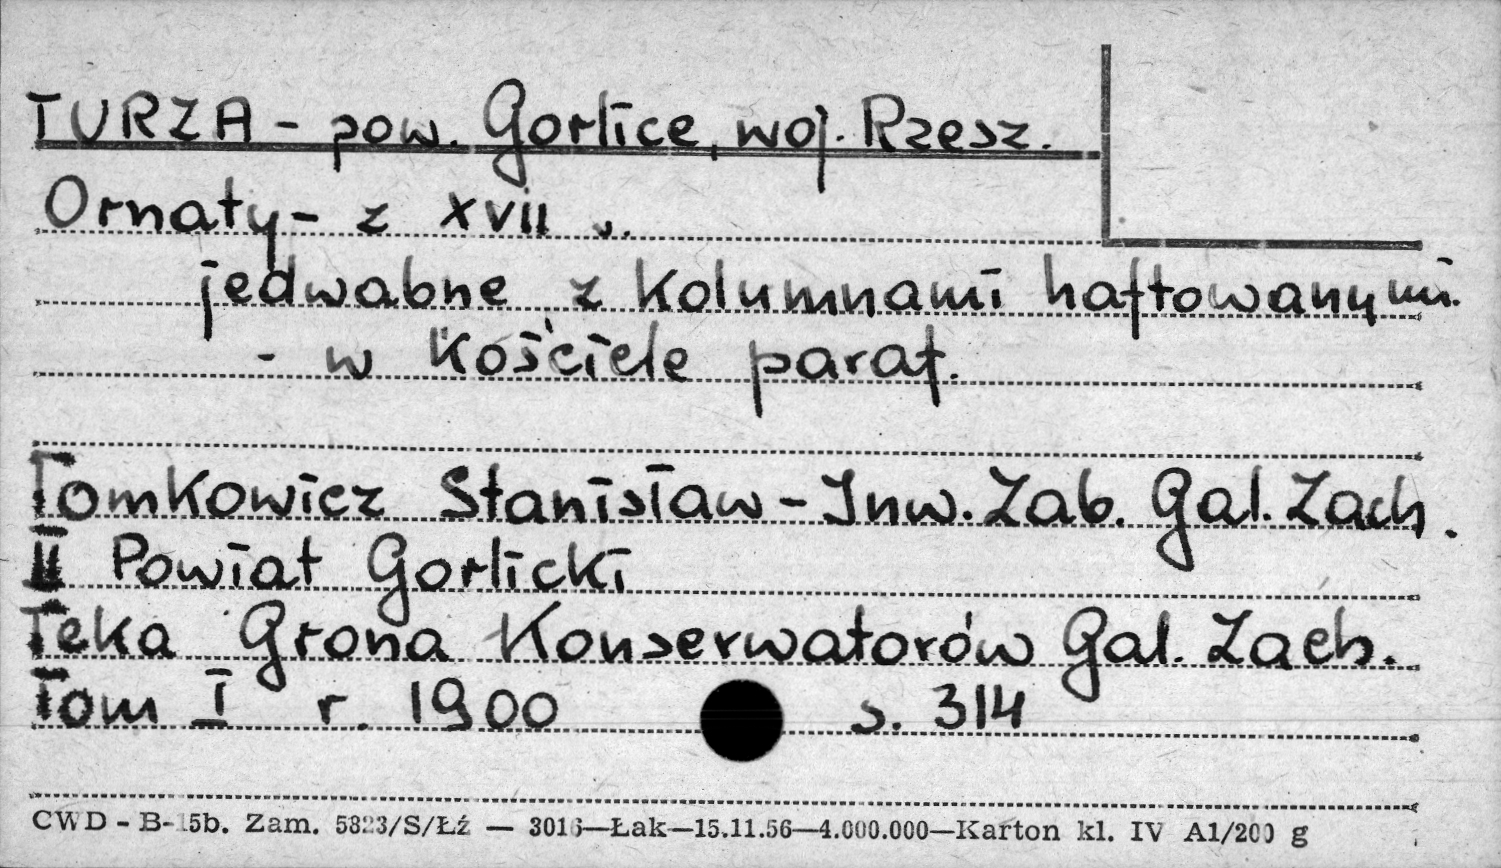 TURZA - pow. Gorlice, woj. Rzesz.
Ornaty - z XVII s.
jedwabne z kolumnami haftowanymi.
- w kościele paraf.
Tomkowicz Stanisław - Inw. Zab. Gal. Zach.
II Powiat Gorlicki
Teka Grona Konserwatorów Gal. Zach.
Tom I r. 1900 s. 314
CWD - B-15b. Zam. 5823/S/Łź — 3016—Łak—15.11.56—4.000.000—Karton kl. IV A1/200 g